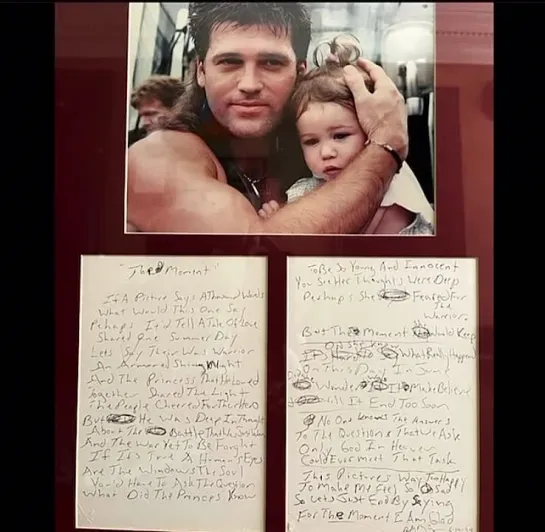 "The Moment"
If A Picture Says A Thousand Words
What Would This One Say
Perhaps It'd Tell A Tale Of Love
Shared One Summer Day
Lets Say Their Was Warrior
An Armored Shining Night
And The Princess That He Loved
Together Shared The Light
The People Cheered For The Hero
But He Was Deep In Thought
About The Battle That He
And The War Yet To Be Fought
If Its True A Human Eyes
Are The Windows The Soul
Would Have To Ask The Question
What Did The Princes Know
To Be So Young And Innocent
You See Her Thoughts Were Deep
Perhaps She Feared For
The
Warrior
But The Moment Would Keep
It's Hard To What Really Happen
On This Day In
Wonder If Make Believe
Will It End Too Soon
No One Knows The Answers
To The Questions That We Ask
Only God In Heaven
Could Ever Meet That Task
This Pictures Way Too Happy
To Make Me Feel So Sad
So Lets Just End By Saying
For The Moment I Am Glad